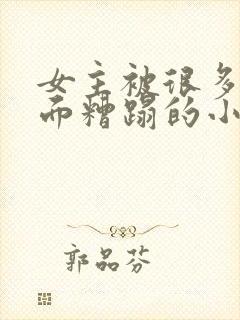 女主被很多
而糟蹋的小
郭品芬